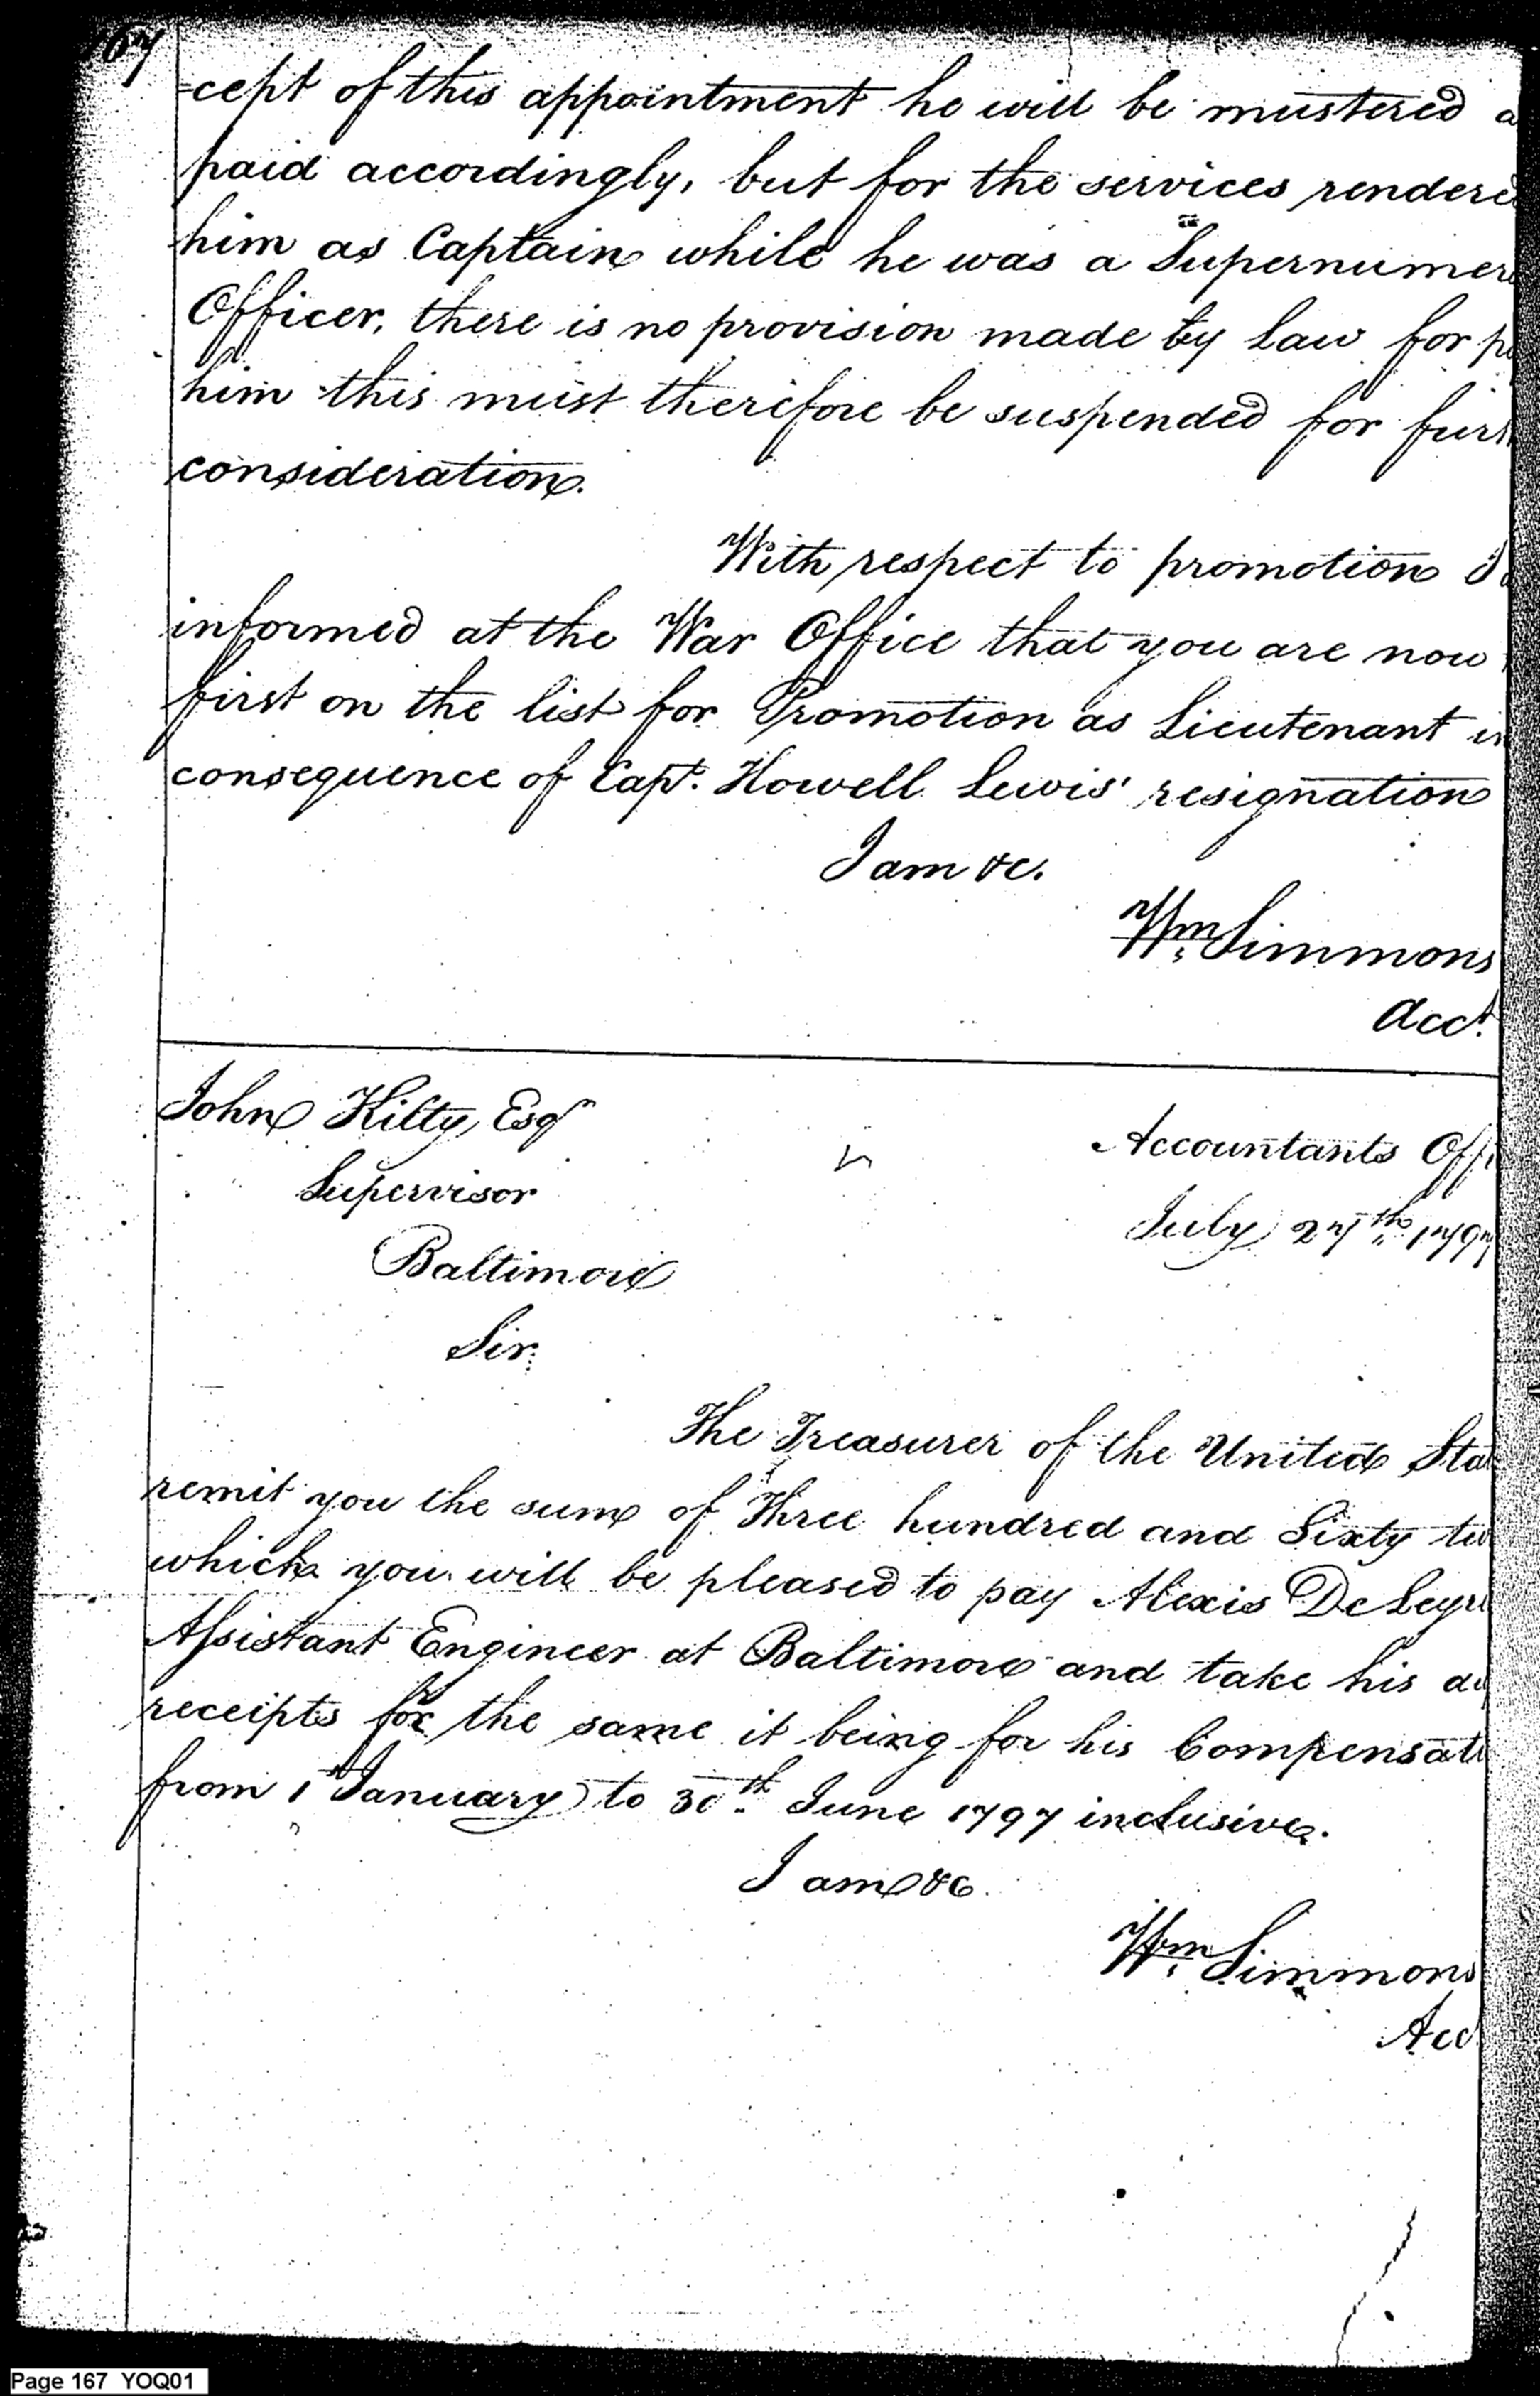 167
-cept of this appointment he will be mustered a
paid accordingly, but for the services rendered
him as Captain while he was a Supernumer
Officer, there is no provision made by Law for p
him this must therefore be suspended for furt
consideration.
With respect to promotion I
informed at the War Office that you are now
first on the list for Promotion as Lieutenant in
consequence of Capt. Howell Lewis' resignation
I am &c.
Wm Simmons
Acct.
John Kilty, Esqr
Supervisor
Baltimore
Sir.
Accountants Offi
July 27th 1797
The Treasurer of the United Stat
remit you the sum of Three hundred and Sixty tw
which you will be pleased to pay Alexis De Leyri
Assistant Engineer at Baltimore and take his
receipts for the same it being for his Compensati
from 1st January to 30th June 1797 inclusive.
I am &c.
Wm Simmons
Acc
Page 167 YOQ01